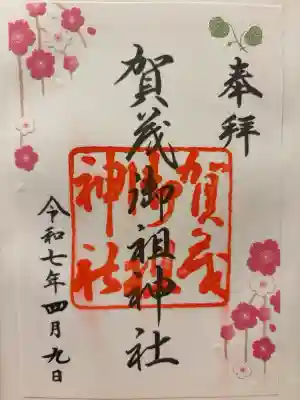 奉拝
賀茂御祖神社
賀茂御祖神社
令和七年四月九日